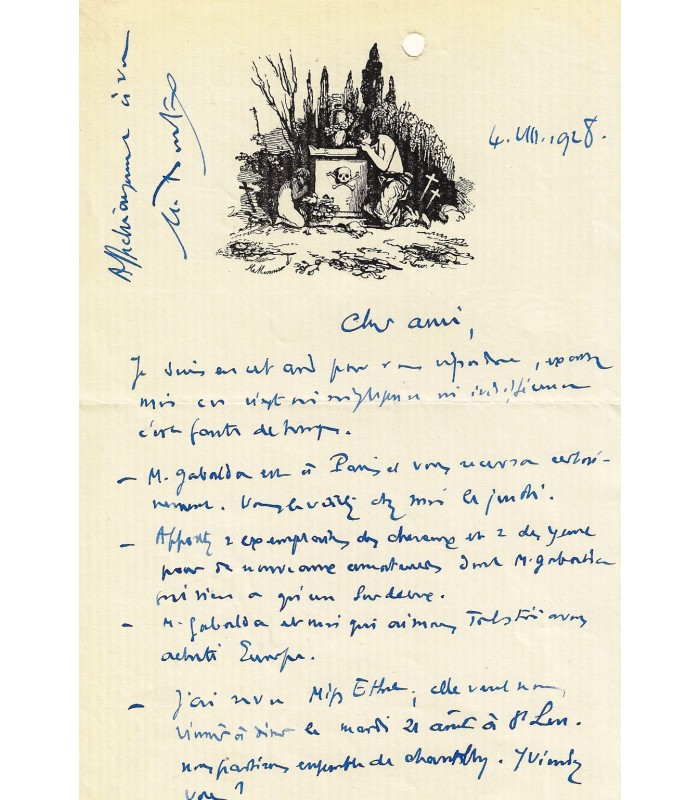 4. VIII. 1928.
Cher ami,
Je suis en retard pour vous répondre, excusez
moi ce n'est ni négligence ni indifférence
c'est faute de temps.
– M. Gabalda est à Paris et vous recevra certai-
nement. Vous chez moi le jeudi.
– Apportez 2 exemplaires des chevaux et 2 des yeux
pour de nouveaux amateurs dont M. Gabalda
qui n'en a qu'un sur deux.
– M. Gabalda et moi qui aimons Tolstoï avons
acheté Europe.
– J'ai revu Miss Ethel, elle veut nous
à dîner le mardi 21 août à St Leu.
nous partirons ensemble de Chantilly. Y viendrez
vous ?
Affectueusement à vous